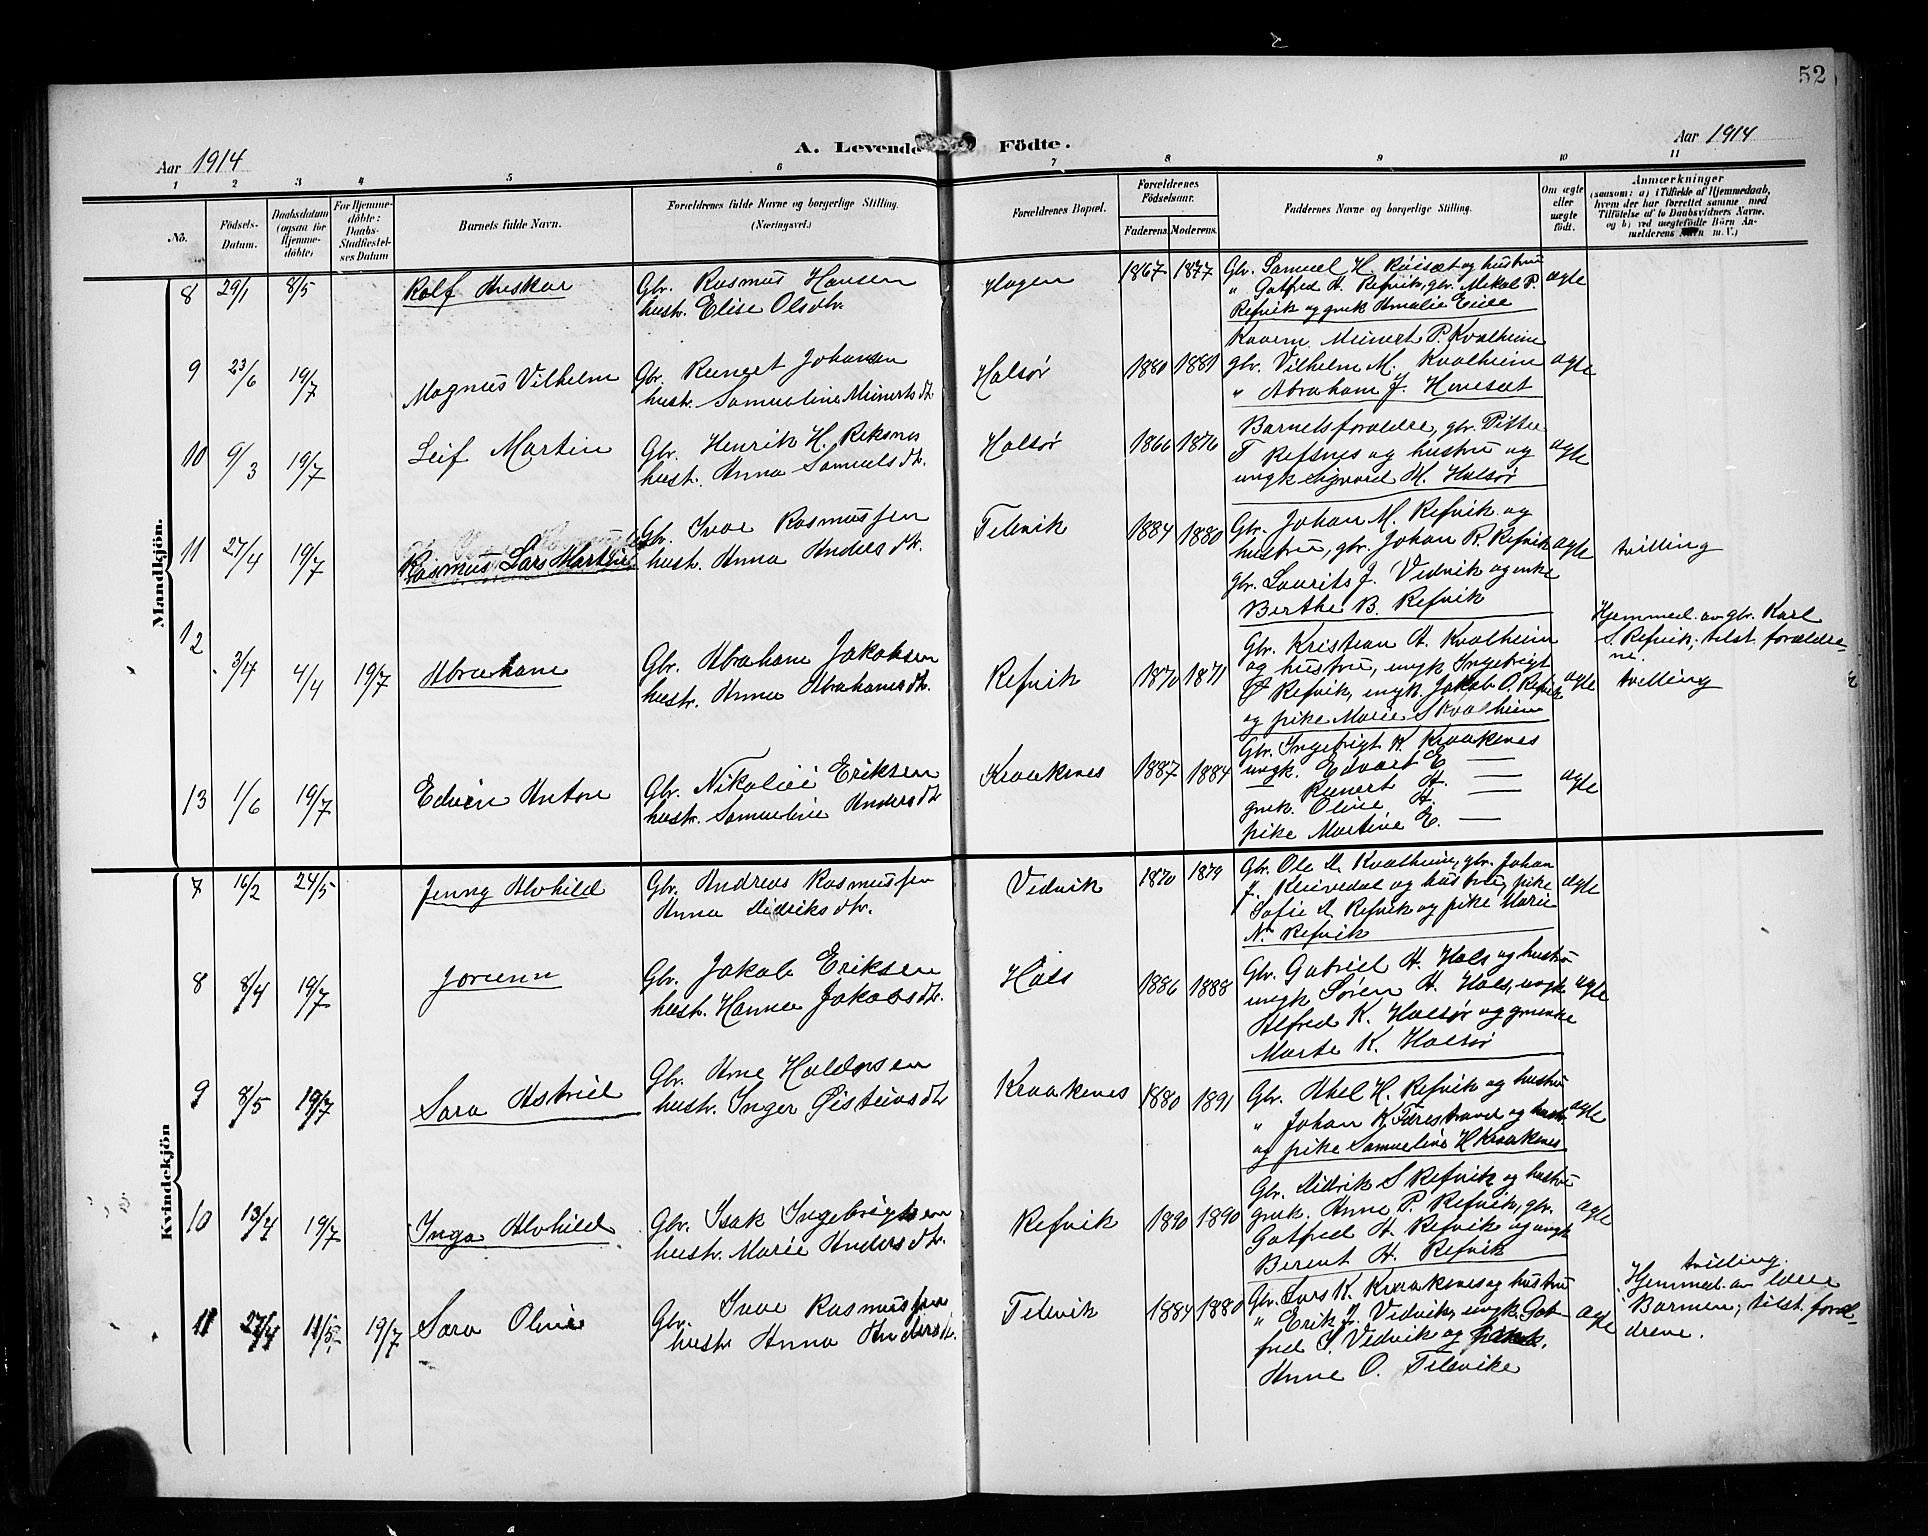 52
Aar 1914
A. Levende Födte.
Aar 1914
1 2 3 4 5 6 7 8 9 10 11
No.
Födsels-Datum.
Daabsdatum (ogsaa for Hjemmedöbte)
For Hjemmedöbte: Daabs-Stadfæstelses Datum
Barnets fulde Navn.
Forældrenes fulde Navne og borgerlige Stilling. (Næringsvei.)
Forældrenes Bopæl.
Forældrenes Födselsaar.
Faderens. Moderens.
Faddernes Navne og borgerlige Stilling.
Om ægte eller uægte födt.
Anmærkninger
(saasom: a) i Tilfælde af Hjemmedaab, hvem der har forrettet samme med Tilföielse af to Daabsvidners Navne, og b) ved uægtefödte Börn Anmelderens Navn m. V.)
Mandkjön.
8 29/1 8/5 Rolf Anskar
Gbr. Rasmus Hansen
hustr. Elise Olsdtr.
Hagen 1867 1877
Gbr. Samuel H. Röisæt og hustru
" Gotfred A. Refvik, gbr. Mikal P.
Refvik og gmk Amalie
ægte
9 23/6 19/7 Magnus Vilhelm
Gbr. Reinert Johansen
hustr. Samueline Meinertsdtr.
Halsør 1880 1881
Kaarm. Meinert P. Kvalheim
gbr. Vilhelm M. Kvalheim
" Abraham J. Hovesæt
ægte
10 9/3 19/7 Leif Martin
Gbr. Henrik H. Reksnes
hustr. Anna Samuelsdtr.
Halsør 1866 1876
Barnets forældre, gbr. Pitter
T Refsnes og hustru og
ungk Sigvard M. Halsør
ægte
11 27/4 19/7 Rasmus Lars Martin
Gbr. Ivar Rasmussen
hustr. Anna Andersdtr.
Televik 1884 1880
Gbr. Johan M. Refvik og
hustru, gbr. Johan R. Refvik
gbr. Laurits J. Vedvik og enke
Berthe B. Refvik
ægte
tvilling
12 3/4 4/4 19/7 Abraham
Gbr. Abraham Jakobsen
hustr. Anna Abrahamsdtr.
Refvik 1870 1871
Gbr. Kristian A. Kvalheim
og hustru, ungk Ingebrigt
Ø Refvik, ungk. Jakob O. Refvik
og pike Marie S Kvalheim
ægte
Hjemmed. av gbr. Karl
S. Refvik, tilst. forældre-
ne.
tvilling
13 1/6 19/7 Edvin Anton
Gbr. Nikolai Eriksen
hustr. Samueline Andersdtr
Kraakenes 1887 1884
Gbr. Ingebrigt K. Kraakenes
ungk. Edvart E —
— Reinert A. —
gmk. Oline A. —
pike Martine E. —
ægte
Kvindekjön
7 16/2 24/5 Jenny Alvhild
Gbr. Andreas Rasmussen
Anna Didriksdtr.
Vedvik 1870 1879
Gbr. Ole A. Kvalheim, gbr. Johan
J. Kleivedal og hustru, pike
Sofie A Refvik og pike Marie
N. Refvik
ægte
8 8/4 19/7 Jorunn
Gbr. Jakob Eriksen
hustr. Hanna Jakobsdtr.
Hals 1886 1888
Gbr. Gabriel A. Hals og hustru
ungk Søren A. Hals, ungk
Alfred K. Halsør og gm enke
Marte K. Halsør
ægte
9 8/5 19/7 Sara Astrid
Gbr. Arne Haldorsen
hustr. Inger Øisteinsdtr
Kraakenes 1880 1891
Gbr. Abel H. Refvik og hustru
" Johan K. Færestrand og hustr.
og pike Samueline H Kraakenes
ægte
10 13/4 19/7 Inga Alvhild
Gbr. Isak Ingebrigtsen
hustr. Marie Andersdtr.
Refvik 1890 1890
Gbr. Didrik S Refvik og hustru
gmk. Anne P. Refvik, gbr.
Gotfred A. Refvik og ungk
Berent A. Refvik
ægte
11 27/4 11/5 19/7 Sara Oline
Gbr. Ivar Rasmussen
hustr Anna Andersdtr.
Televik 1884 1880
Gbr. Lars K. Kraakenes og hustru
" Erik J. Vedvik, ungk. Got-
fred S. Vedvik og
Anne O. Televike
ægte
tvilling.
Hjemmed. av
Barmen, tilst. foræl-
drene.